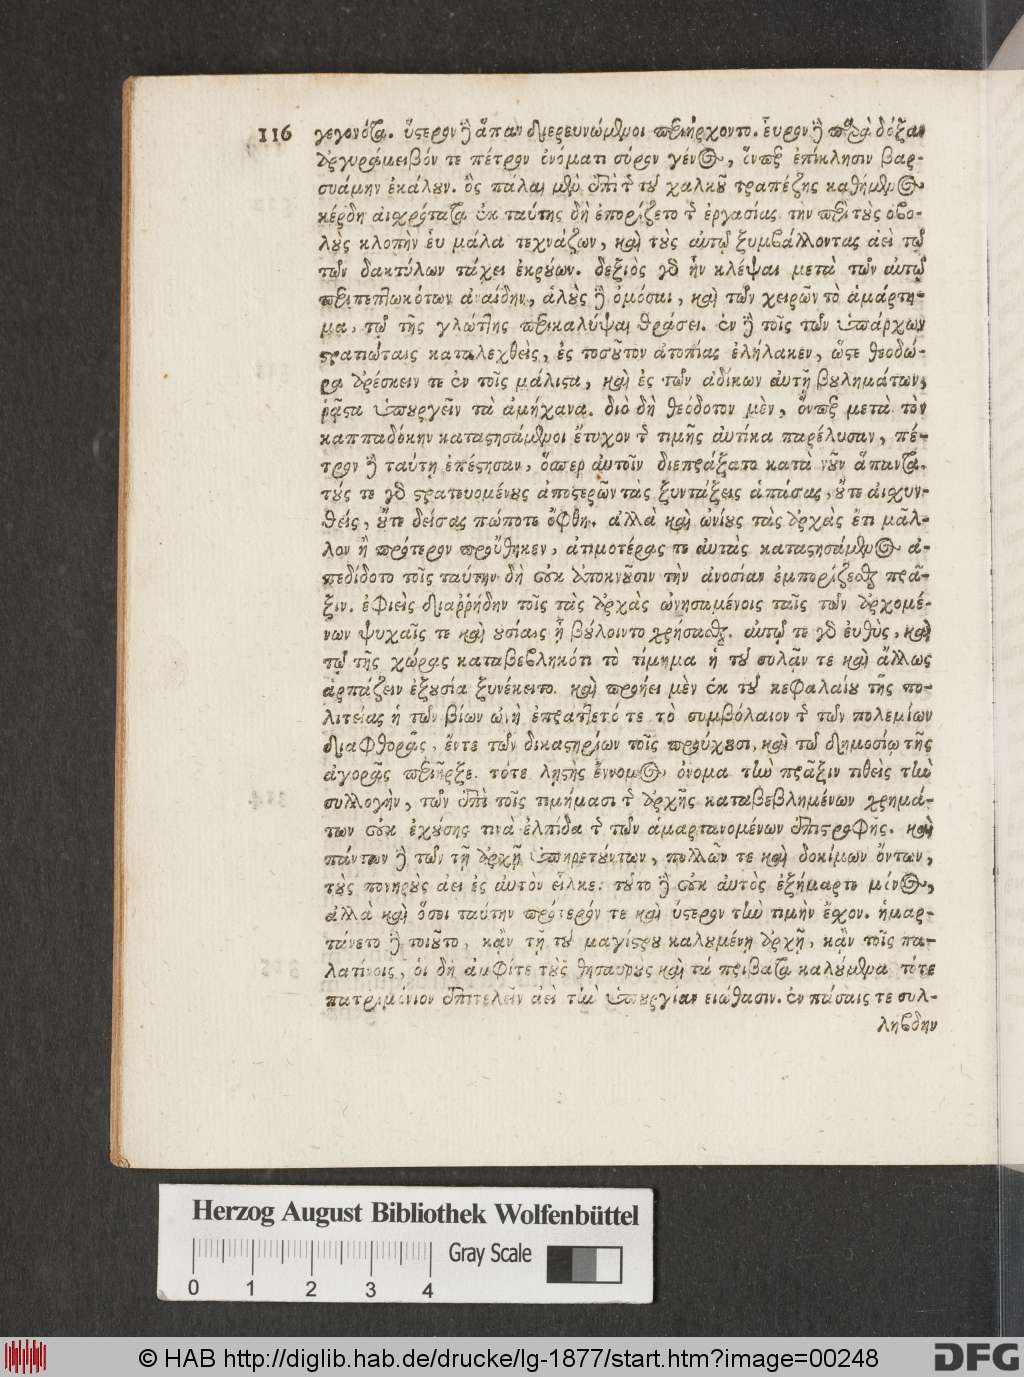 116 γεγονότα. ὕστερον δὲ ἅπαν διερευνώμενοι περιήρχοντο. εὗρον δὲ παρὰ δόξαν
ἀργυραμειβόν τε πέτρον ὀνόματι σύρον γένος, ὅνπερ ἐπίκλησιν βαρ-
συάμην ἐκάλουν. ὃς πάλαι μὲν ἐπὶ τῆς τοῦ χαλκοῦ τραπέζης καθήμενος
κέρδη αἰσχρότατα ἐκ ταύτης δὴ ἐπορίζετο τῆς ἐργασίας τὴν περὶ τοὺς ὀβο-
λοὺς κλοπὴν εὖ μάλα τεχνάζων, καὶ τοὺς αὐτῷ ξυμβάλλοντας ἀεὶ τῷ
τῶν δακτύλων τάχει ἐκρούων. δεξιὸς γὰρ ἦν κλέψαι μετὰ τῶν αὐτῷ
περιπεπτωκότων ἀναίδην, ἁλοὺς δὲ ὀμόσαι, καὶ τῶν χειρῶν τὸ ἁμάρτη-
μα, τῷ τῆς γλώττης περικαλύψαι θράσει. ἐν δὲ τοῖς τῶν ὑπάρχων
στρατιώταις καταλεχθεὶς, ἐς τοσοῦτον ἀτοπίας ἐλήλακεν, ὥστε θεοδώ-
ρα ἀρέσκειν τε ἐν τοῖς μάλιστα, καὶ ἐς τῶν ἀδίκων αὐτῇ βουλημάτων,
ῥᾷστα ὑπουργεῖν τὰ ἀμήχανα. διὸ δὴ θεόδοτον μὲν, ὅνπερ μετὰ τὸν
καππαδόκην καταστησάμενοι ἔτυχον τῆς τιμῆς αὐτίκα παρέλυσαν, πέ-
τρον δὲ ταύτῃ ἐπέστησαν, ὅσπερ αὐτοῖν διεπράξατο κατὰ νοῦν ἅπαντα.
τούς τε γὰρ στρατευομένους ἀποστερῶν τὰς ξυντάξεις ἁπάσας, οὔτε αἰσχυν-
θείς, οὔτε δείσας πώποτε ὤφθη. ἀλλὰ καὶ ὠνίους τὰς ἀρχὰς ἔτι μᾶλ-
λον ἢ πρότερον προὔθηκεν, ἀτιμοτέρας τε αὐτὰς καταστησάμενος ἀ-
πεδίδοτο τοῖς ταύτην δὴ οὐκ ἀποκνοῦσιν τὴν ἀνοσίαν ἐμπορίζεσθαι πρᾶ-
ξιν. ἐφιεὶς διαρρήδην τοῖς τὰς ἀρχὰς ὠνησαμένοις ταῖς τῶν ἀρχομέ-
νων ψυχαῖς τε καὶ οὐσίαις ᾗ βούλοιντο χρήσασθαι. αὐτῷ τε γὰρ εὐθὺς, καὶ
τῷ τῆς χώρας καταβεβληκότι τὸ τίμημα ἡ τοῦ συλᾶν τε καὶ ἄλλως
ἁρπάζειν ἐξουσία ξυνέκειτο. καὶ προῄει μὲν ἐκ τοῦ κεφαλαίου τῆς πο-
λιτείας ἡ τῶν βίων ὠνὴ ἐπράττετό τε τὸ συμβόλαιον τῆς τῶν πολεμίων
διαφθορᾶς, ἔντε τῶν δικαστηρίων τοῖς προύχουσι, καὶ τῷ δημοσίῳ τῆς
ἀγορᾶς περιῆρξε. τότε λῃστὴς ἔννομος, ὄνομα τὴν πρᾶξιν τιθεὶς τὴν
συλλογὴν, τῶν ἐπὶ τοῖς τιμήμασι τῆς ἀρχῆς καταβεβλημένων χρημά-
των οὐκ ἐχούσης τινὰ ἐλπίδα τῆς τῶν ἁμαρτανομένων ἐπιστροφῆς. καὶ
πάντων δὲ τῶν τῇ ἀρχῇ ὑπηρετούντων, πολλῶν τε καὶ δοκίμων ὄντων,
τοὺς πονηροὺς ἀεὶ ἐς αὐτὸν εἷλκε. τοῦτο δὲ οὐκ αὐτὸς ἐξήμαρτε μόνος,
ἀλλὰ καὶ ὅσοι ταύτην πρότερόν τε καὶ ὕστερον τὴν τιμὴν ἔσχον. ἡμαρ-
τάνετο δὲ τοιοῦτο, κἂν τῇ τοῦ μαγίστρου καλουμένῃ ἀρχῇ, κἂν τοῖς πα-
λατίνοις, οἱ δὴ ἀμφίτε τοὺς θησαυροὺς καὶ τὰ πριβάτα καλούμενα τότε
πατριμόνιον ἐπιτελεῖν ἀεὶ τὴν ὑπουργίαν εἰώθασιν. ἐν πάσαις τε συλ-
λήβδην
Herzog August Bibliothek Wolfenbüttel
Gray Scale
0 1 2 3 4
© HAB http://diglib.hab.de/drucke/lg-1877/start.htm?image=00248 DFG